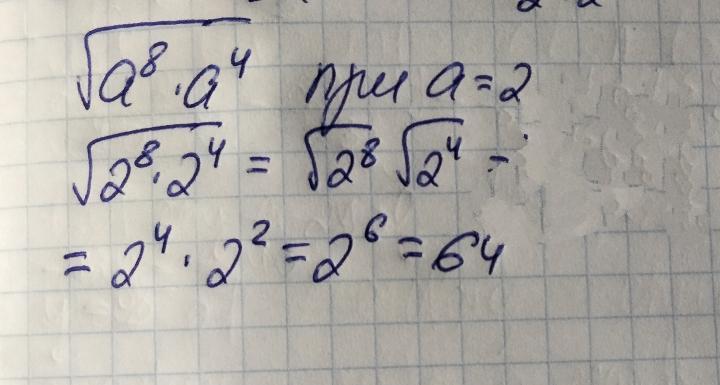 √(a⁸·a⁴) при a=2
√(2⁸·2⁴) = √2⁸ √2⁴ =
= 2⁴·2² = 2⁶ = 64